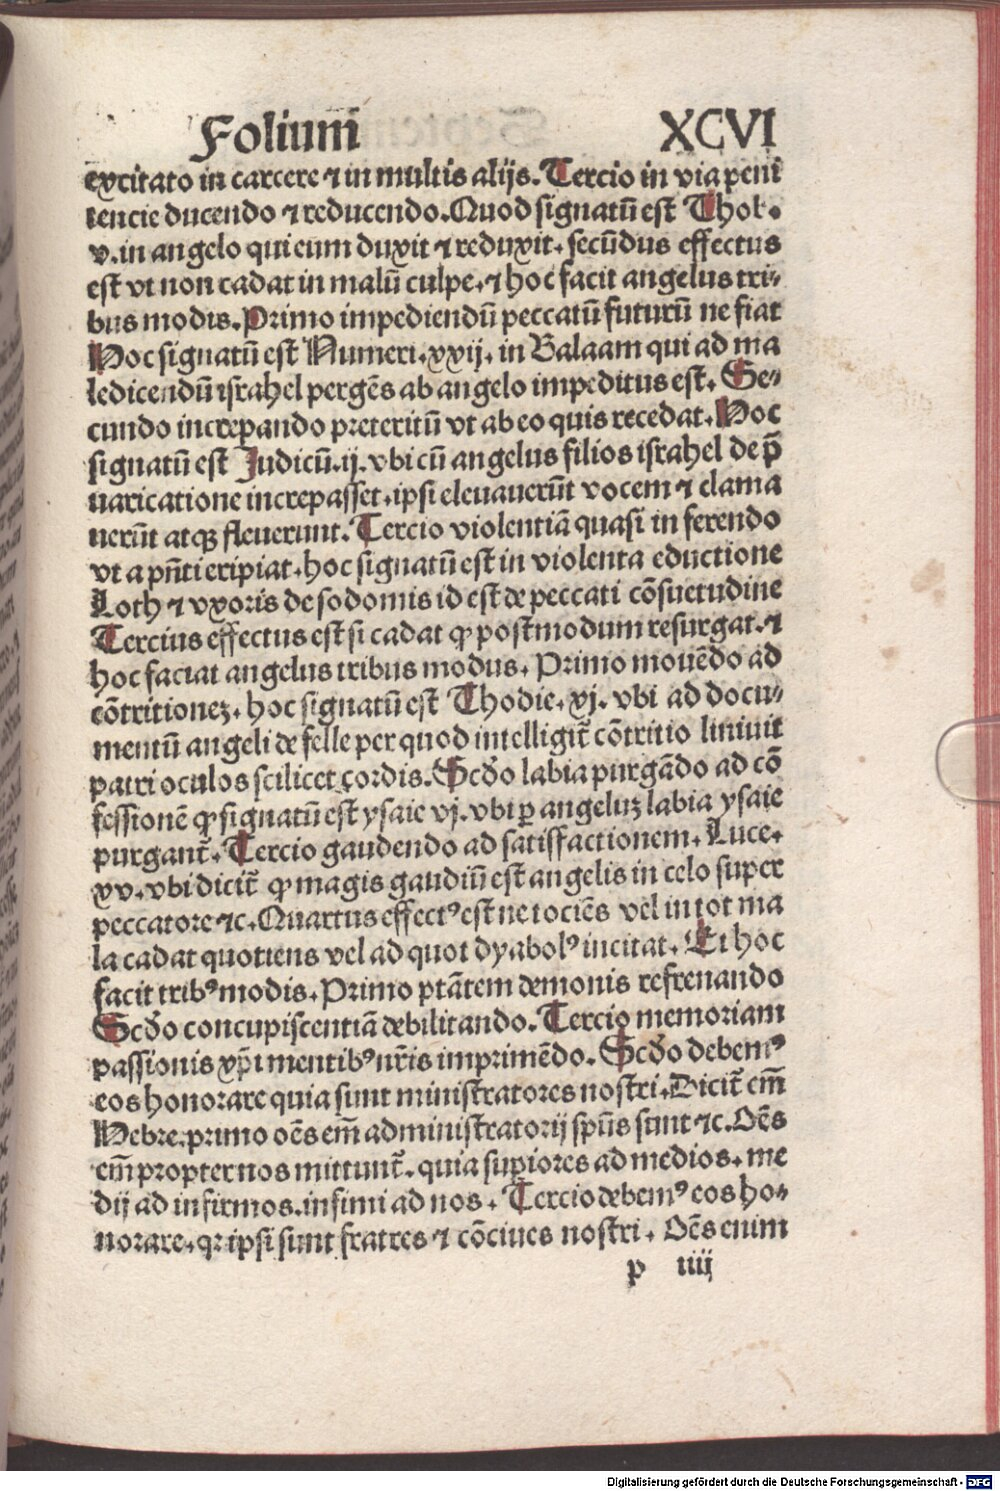 Folium̄ XCVI
excitato in carcere ⁊ in multis alijs. Tercio in via peni
tencie ducendo ⁊ reducendo. Quod signatū est Thob.
v. in angelo qui eum duxit ⁊ reduxit. secūdus effectus
est vt non cadat in malū culpe. ⁊ hoc facit angelus tri-
bus modis. Primo impediendū peccatū futurū ne fiat
Hoc signatū est Numeri. xxij. in Balaam qui ad ma
ledicendū israhel pergēs ab angelo impeditus est. Se-
cundo increpando preteritū vt ab eo quis recedat. Hoc
signatū est Judicū. ij. vbi cū angelus filios israhel de p̄
uaricatione increpasset. ipsi eleuauerūt vocem ⁊ clama
uerūt atqꝫ fleuerunt. Tercio violentiā quasi in ferendo
vt a pn̄ti eripiat. hoc signatū est in violenta eductione
Loth ⁊ vxoris de sodomis id est de peccati cōsuetudine
Tercius effectus est si cadat ꝙ postmodum resurgat. ⁊
hoc faciat angelus tribus modus. Primo mouēdo ad
cōtritioneꝫ. hoc signatū est Thodie. xj. vbi ad docu-
mentū angeli de felle per quod intelligit̄ cōtritio liniuit
patri oculos scilicet cordis. Scd̄o labia purgādo ad cō
fessionē ꝙ signatū est ysaie vj. vbi ꝑ angeluꝫ labia ysaie
purgant̄. Tercio gaudendo ad satisfactionem. Luce.
xv. vbi dicit̄ ꝙ magis gaudiū est angelis in celo super
peccatore ⁊c. Quartus effectꝰ est ne tociēs vel in tot ma
la cadat quotiens vel ad quot dyabolꝰ incitat. Et hoc
facit tribꝰ modis. Primo ptātem demonis refrenando
Scd̄o concupiscentiā debilitando. Tercio memoriam
passionis xp̄i mentibꝰ nr̄is imprimēdo. Scd̄o debemꝰ
eos honorare quia sunt ministratores nostri. Dicit̄ em̄
Hebre. primo oēs em̄ administratorij spūs sunt ⁊c. Oēs
em̄ propter nos mittunt̄. quia suꝑiores ad medios. me
dij ad infirmos. infimi ad nos. Tercio debemꝰ eos ho-
norare. qꝛ ipsi sunt fratres ⁊ cōciues nostri. Oēs enim
p iiij
Digitalisierung gefördert durch die Deutsche Forschungsgemeinschaft - DFG